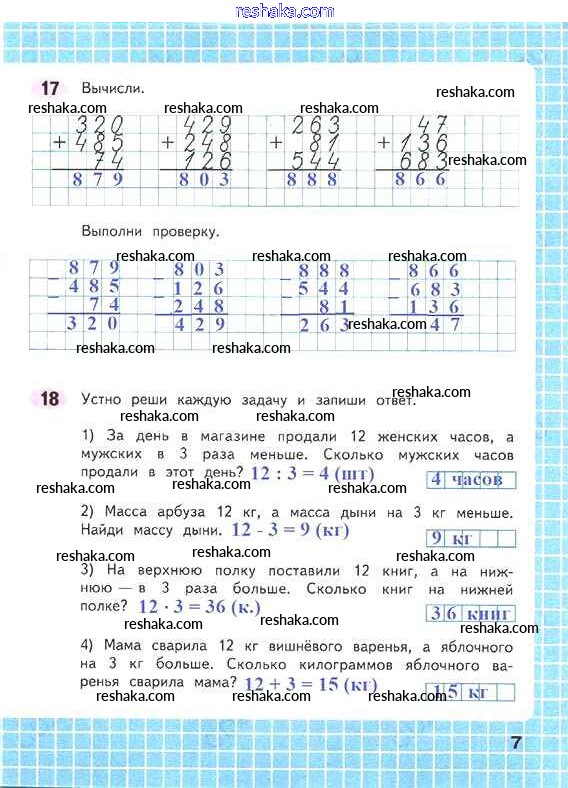 reshaka.com
17 Вычисли.
reshaka.com reshaka.com reshaka.com reshaka.com
320 429 263 47
+ 485 + 248 + 81 + 136
74 126 544 683
879 803 888 866
reshaka.com
reshaka.com reshaka.com reshaka.com
Выполни проверку.
reshaka.com reshaka.com reshaka.com
- 879 - 803 - 888 - 866
- 485 - 126 - 544 - 683
74 248 81 136
320 429 263 47
reshaka.com
reshaka.com reshaka.com
reshaka.com
18 Устно реши каждую задачу и запиши ответ.
reshaka.com reshaka.com
1) За день в магазине продали 12 женских часов, а
мужских в 3 раза меньше. Сколько мужских часов
reshaka.com reshaka.com reshaka.com
продали в этот день? 12 : 3 = 4 (шт) 4 часов
reshaka.com reshaka.com reshaka.com
2) Масса арбуза 12 кг, а масса дыни на 3 кг меньше.
Найди массу дыни. 12 - 3 = 9 (кг) 9 кг
reshaka.com reshaka.com reshaka.com
3) На верхнюю полку поставили 12 книг, а на ниж-
нюю — в 3 раза больше. Сколько книг на нижней
reshaka.com reshaka.com reshaka.com
полке? 12 · 3 = 36 (к.) 36 книг
reshaka.com reshaka.com reshaka.com
4) Мама сварила 12 кг вишнёвого варенья, а яблочного
на 3 кг больше. Сколько килограммов яблочного ва-
reshaka.com reshaka.com reshaka.com
ренья сварила мама? 12 + 3 = 15 (кг) 15 кг
reshaka.com reshaka.com reshaka.com
7
reshaka.com reshaka.com reshaka.com